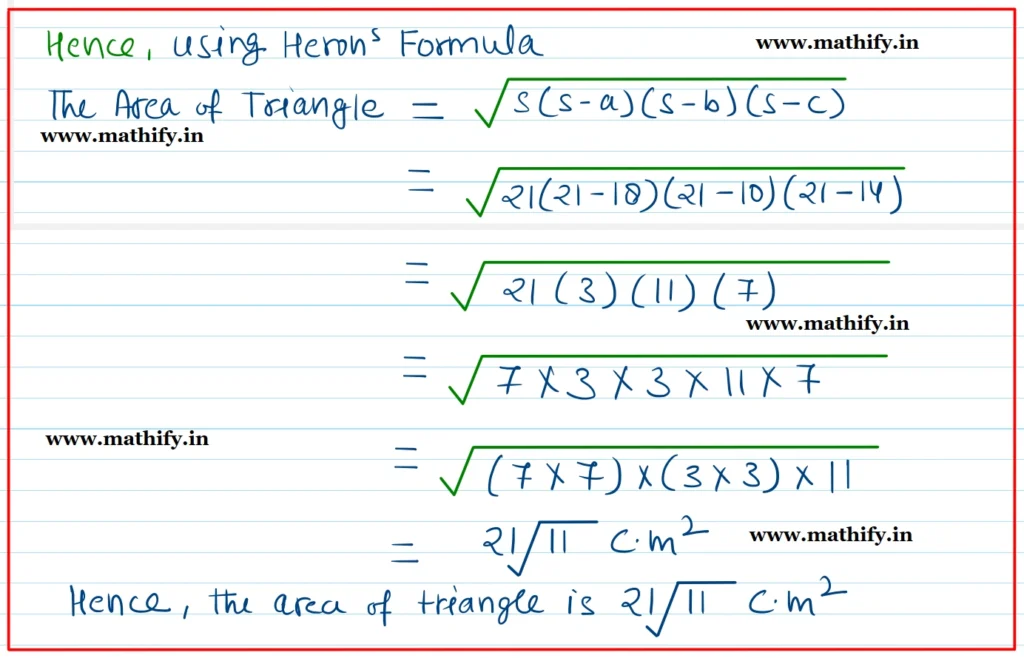 Hence, using Heron^s Formula www.mathify.in
The Area of Triangle = √s(s-a)(s-b)(s-c)
www.mathify.in
= √21(21-18)(21-10)(21-14)
= √21(3)(11)(7)
www.mathify.in
= √7×3×3×11×7
www.mathify.in
= √(7×7)×(3×3)×11
= 21√11 c.m² www.mathify.in
Hence, the area of triangle is 21√11 c.m²